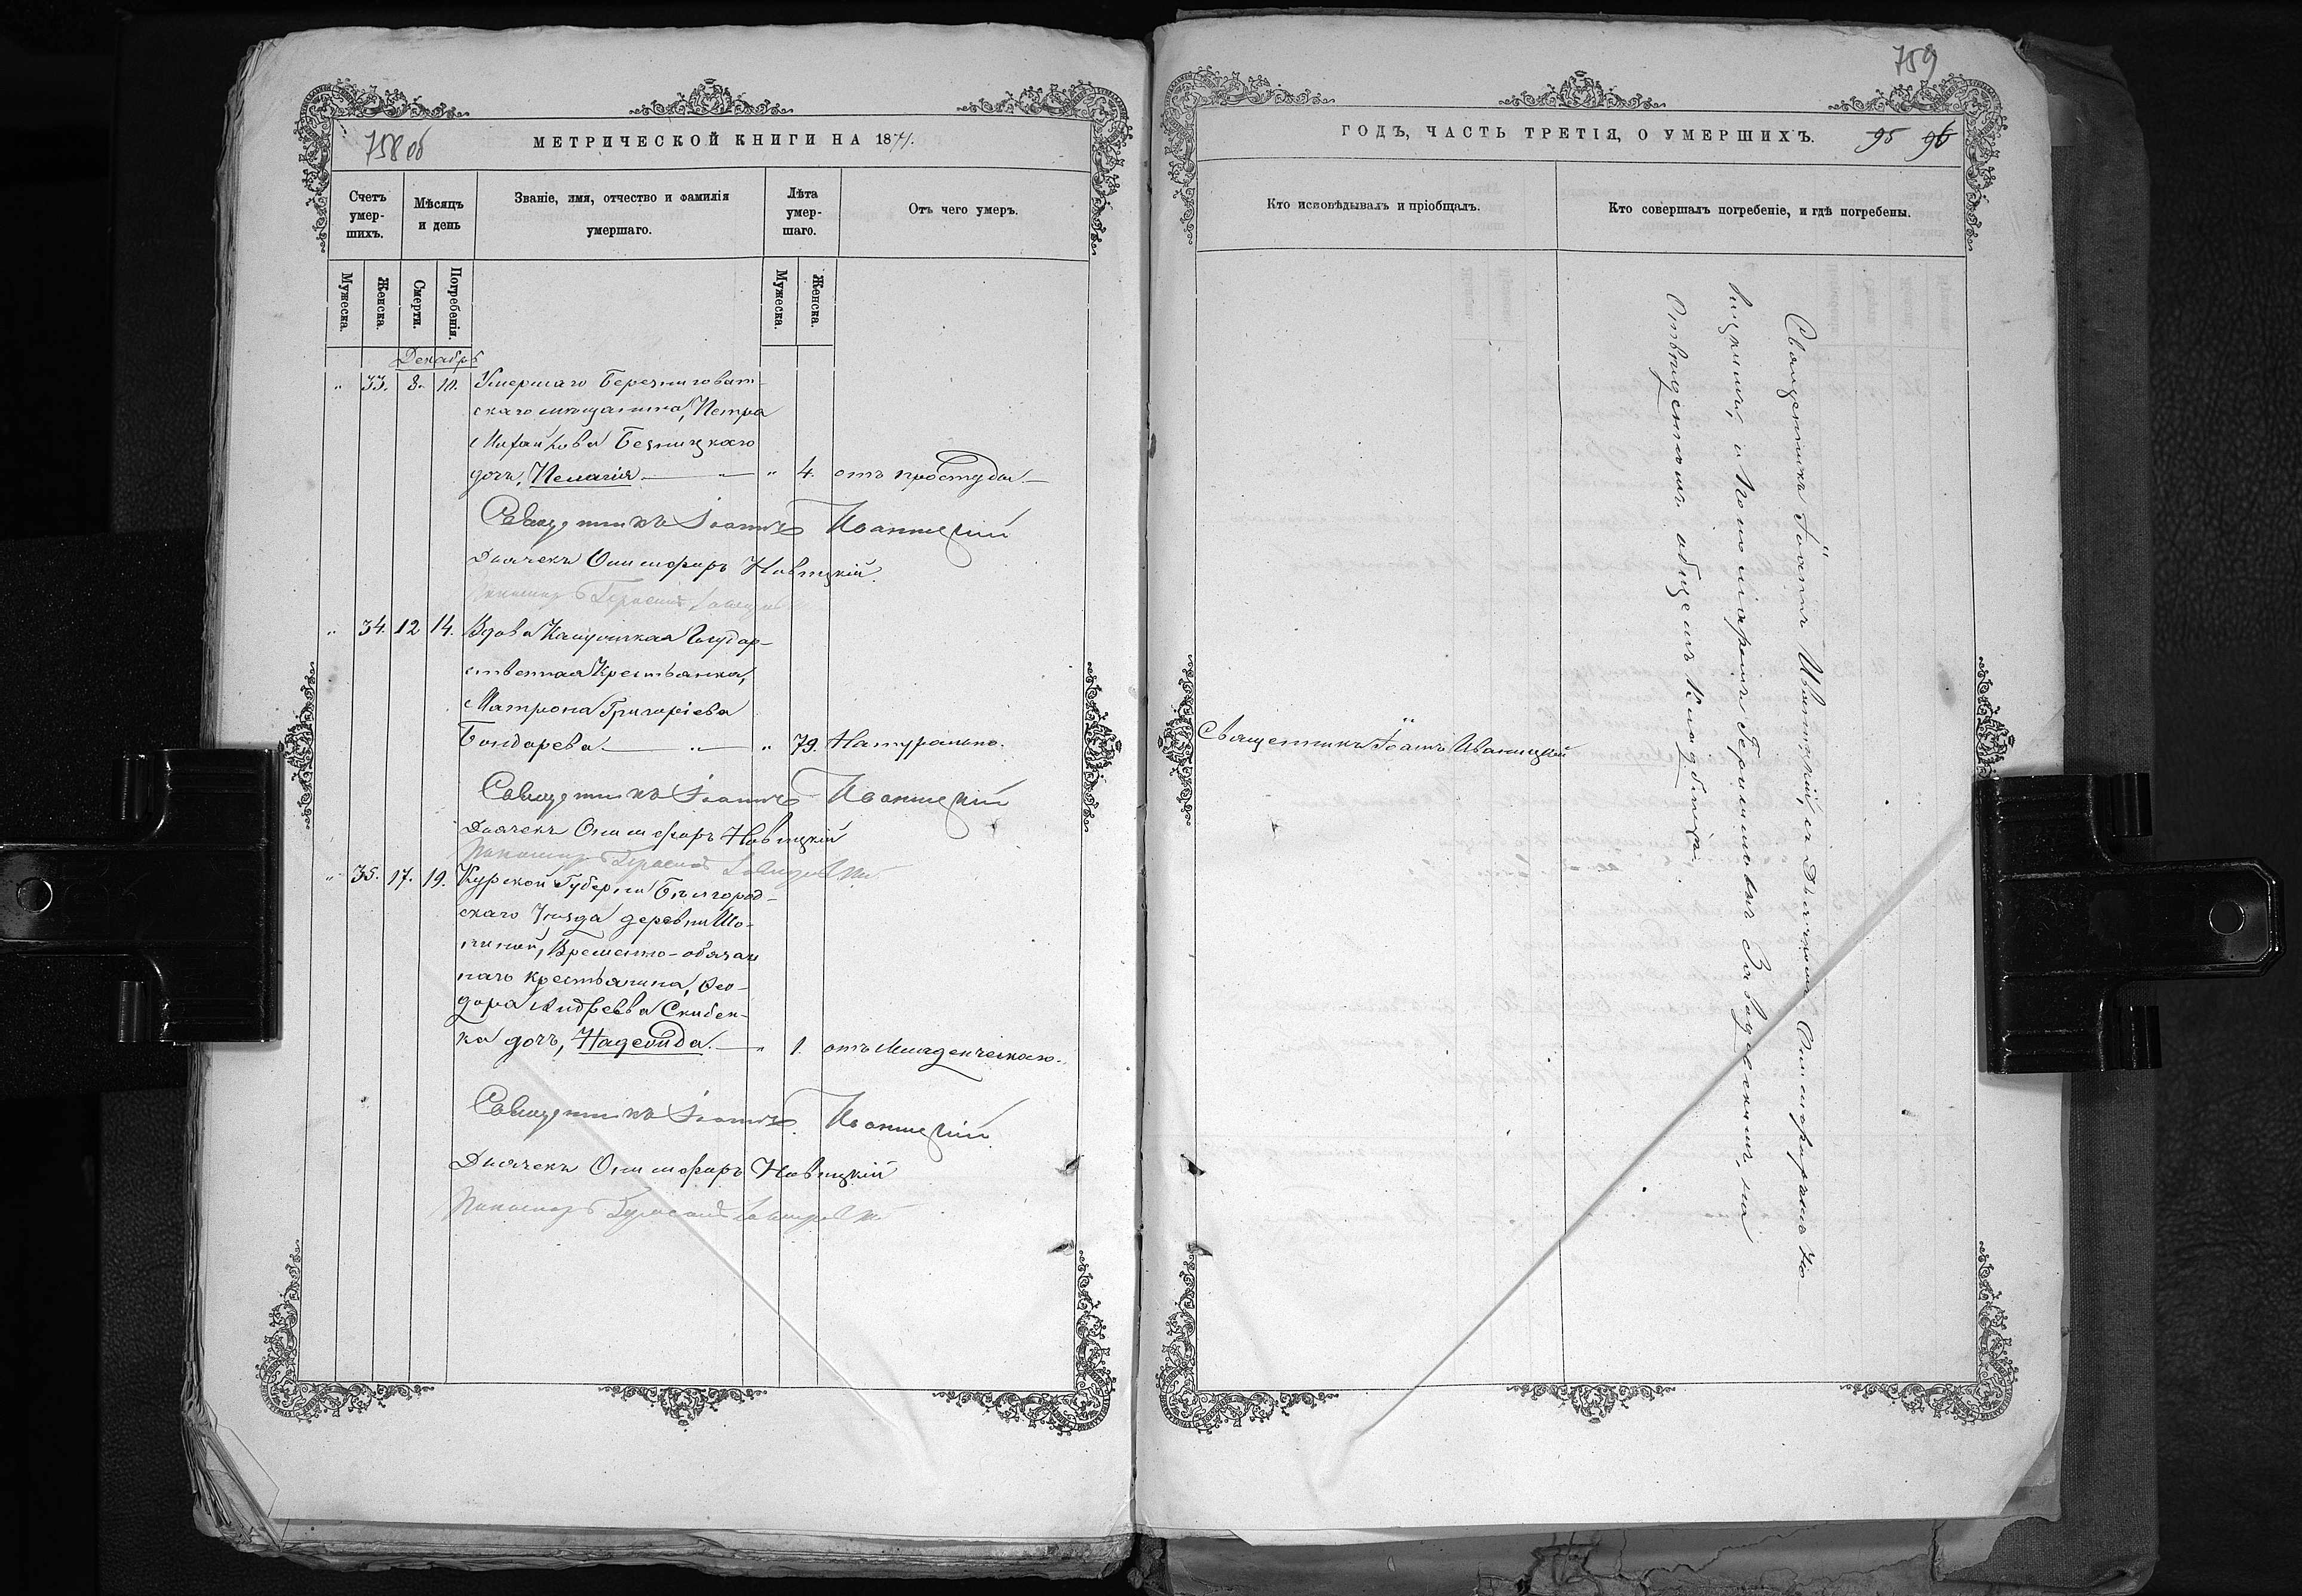 758 об
МЕТРИЧЕСКОЙ КНИГИ НА 1871.
Счетъ умер-шихъ.
Мѣсяцъ и день
Званіе, имя, отчество и фамилія умершаго.
Лѣта умер-шаго.
Отъ чего умеръ.
Мужеска.
Женска.
Смерти.
Погребенія.
Мужеска.
Женска.
Декабрь
" 33. 8. 10. Умершаго Березнеговат-
скаго мѣщанина, Петра
Михайлова Безницкаго
дочь, Пелагія — " 4. отъ простуды.
Священникъ Іоаннъ Иваницкій
Дьячекъ Онисифоръ Новицкій.
Пономарь Герасимъ
" 34. 12 14. Вдова Государ-
ственная Крестьянка,
Матрона Григоріева
Бондарева — " — " 79. Натурально.
Священникъ Іоаннъ Иваницкій
Дьячекъ Онисифоръ Новицкій
Пономарь Герасимъ
" 35. 17. 19. Курской Губерніи Бѣлгород-
скаго Уѣзда деревни Шо-
пиной, Временно-обязан
наго крестьянина, Ѳео-
дора Андреева Скибен-
ка дочь, Надежда. — " 1. отъ Младенческаго.
Священникъ Іоаннъ Иваницкій
Дьячекъ Онисифоръ Новицкій
Пономарь Герасимъ
759
ГОДЪ, ЧАСТЬ ТРЕТІЯ, О УМЕРШИХЪ.
95 96
Кто исповѣдывалъ и пріобщалъ.
Кто совершалъ погребеніе, и гдѣ погребены.
Священникъ Іоаннъ Иваницкій
Священникъ Іоаннъ Иваницкій, съ Дьячкомъ Онисифоромъ Но-
вицкимъ, и Пономаремъ Герасимомъ на
Отведенномъ общемъ Кладбищѣ.